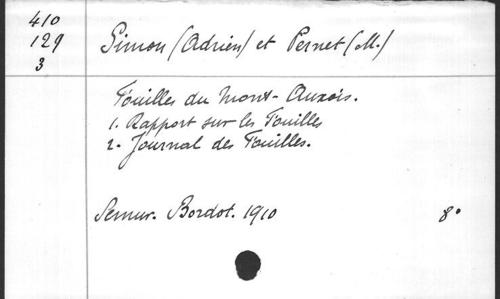 410
129
3
Simon (Adrien) et Pernet (M.)
Fouilles du Mont-Auxois.
1. Rapport sur les Fouilles
2. Journal des Fouilles.
Semur. Bordot. 1910 8°